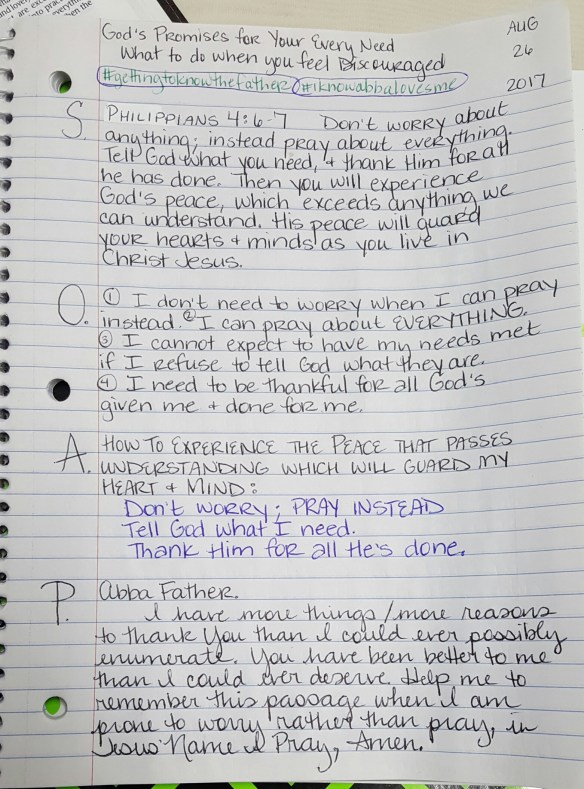 God's Promises for Your Every Need
What to do when you feel Discouraged
#gettingtoknowthefather #iknowabbalovesme
AUG
26
2017
S. PHILIPPIANS 4:6-7 Don't WORRY about
anything; instead pray about everything.
Tell God what you need, + thank Him for all
he has done. Then you will experience
God's peace, which exceeds anything we
can understand. His peace will guard
your hearts + minds as you live in
Christ Jesus.
O. ① I don't need to worry when I can pray
instead. ② I can pray about EVERYTHING.
③ I cannot expect to have my needs met
if I refuse to tell God what they are.
④ I need to be thankful for all God's
given me + done for me.
A. HOW TO EXPERIENCE THE PEACE THAT PASSES
UNDERSTANDING WHICH WILL GUARD MY
HEART + MIND:
Don't WORRY; PRAY INSTEAD
Tell God what I need.
Thank Him for all He's done.
P. Abba Father.
I have more things/more reasons
to thank You than I could ever possibly
enumerate. You have been better to me
than I could ever deserve. Help me to
remember this passage when I am
prone to worry rather than pray, in
Jesus' Name I Pray, Amen.